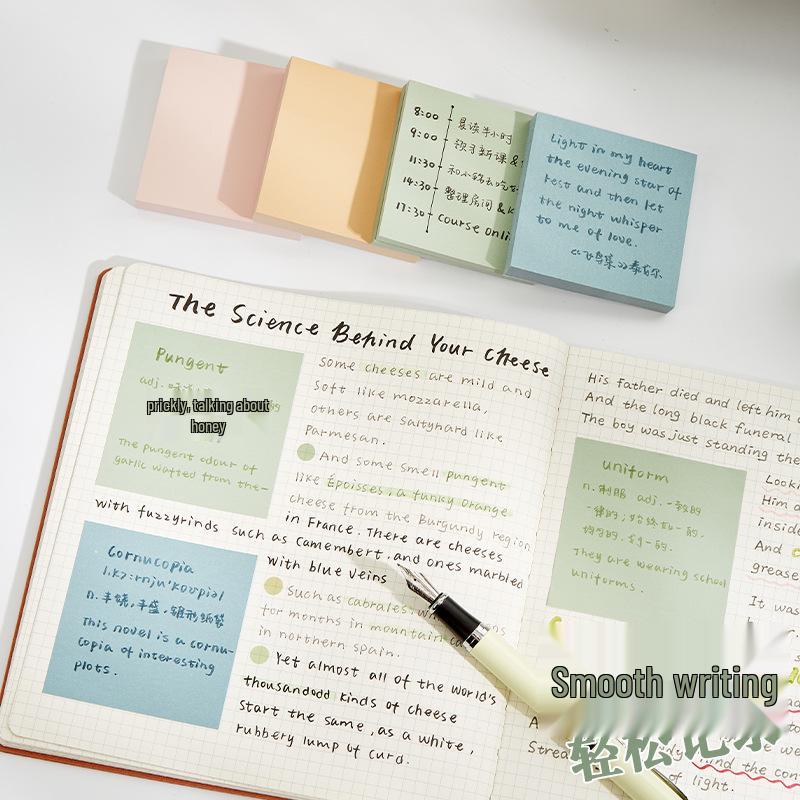 8:00
晨读半小时
9:00
预习新课 &
11:30
和小铭去吃
14:30
整理房间 &
17:30
course onli
Light in my heart
the evening star of
rest and then let
the night whisper
to me of love.
《飞鸟集》泰戈尔
The Science Behind Your Cheese
Pungent
adj.
prickly, talking about
honey
The pungent odour of
garlic wafted from the-
some cheeses are mild and
soft like mozzarella,
others are saltyhard like
Parmesan.
And some smell pungent
like Époisses, a funky orange
cheese from the Burgundy region
in France. There are cheeses
with fuzzyrinds such as Camembert, and ones marbled
with blue veins
Such as cabrales,
for months in mountain
in northern spain.
Yet almost all of the world's
thousandodd kinds of cheese
start the same, as a white,
rubbery lump of curd.
Cornucopia
n. 丰饶,丰盛,锥形纸袋
This novel is a cornu-
copia of interesting
plots.
His father died and left him
And the long black funeral
The boy was just standing the
uniform
n. 制服 adj. 一致的
律的;始终如一的.
均匀的,划一的.
They are wearing school
uniforms.
Him
inside
And
grease
It was
Smooth writing
轻松记录
find the con
of light.